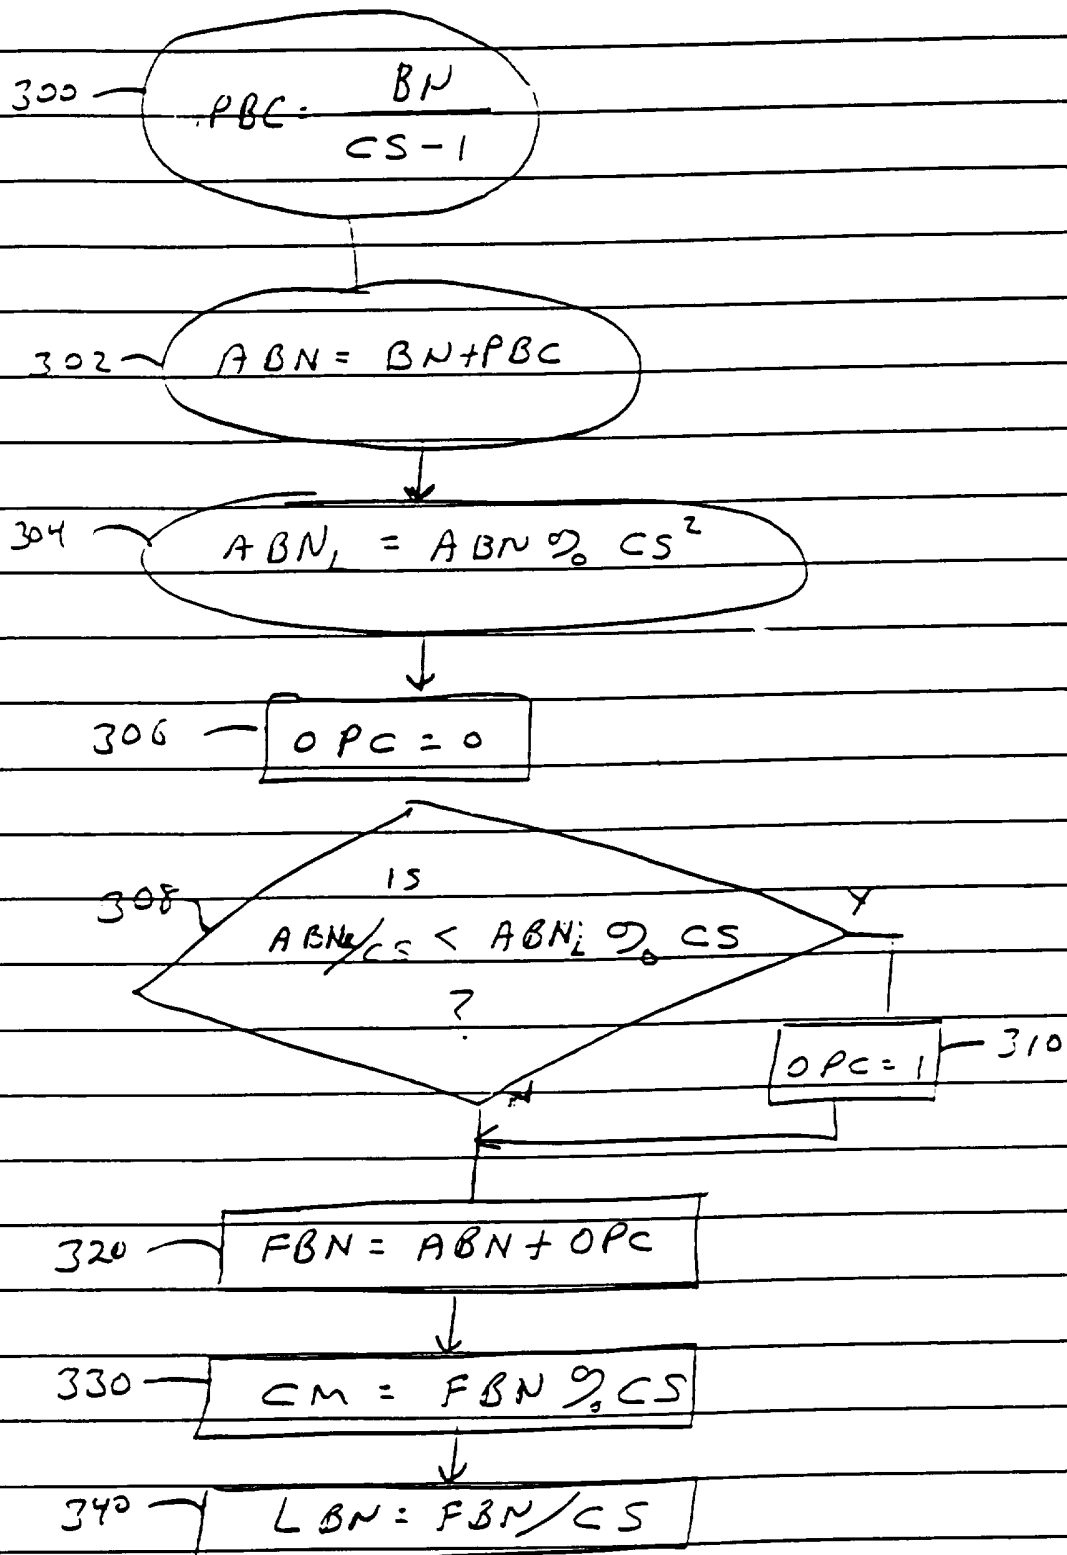 300
PBC = BN / CS-1
302
ABN = BN+PBC
304
ABN_L = ABN % CS²
306
OPC = 0
308
IS
Y
/CS < ABN_i % CS
?
OPC = 1
310
N
320
FBN = ABN + OPC
330
CM = FBN % CS
340
LBN = FBN/CS